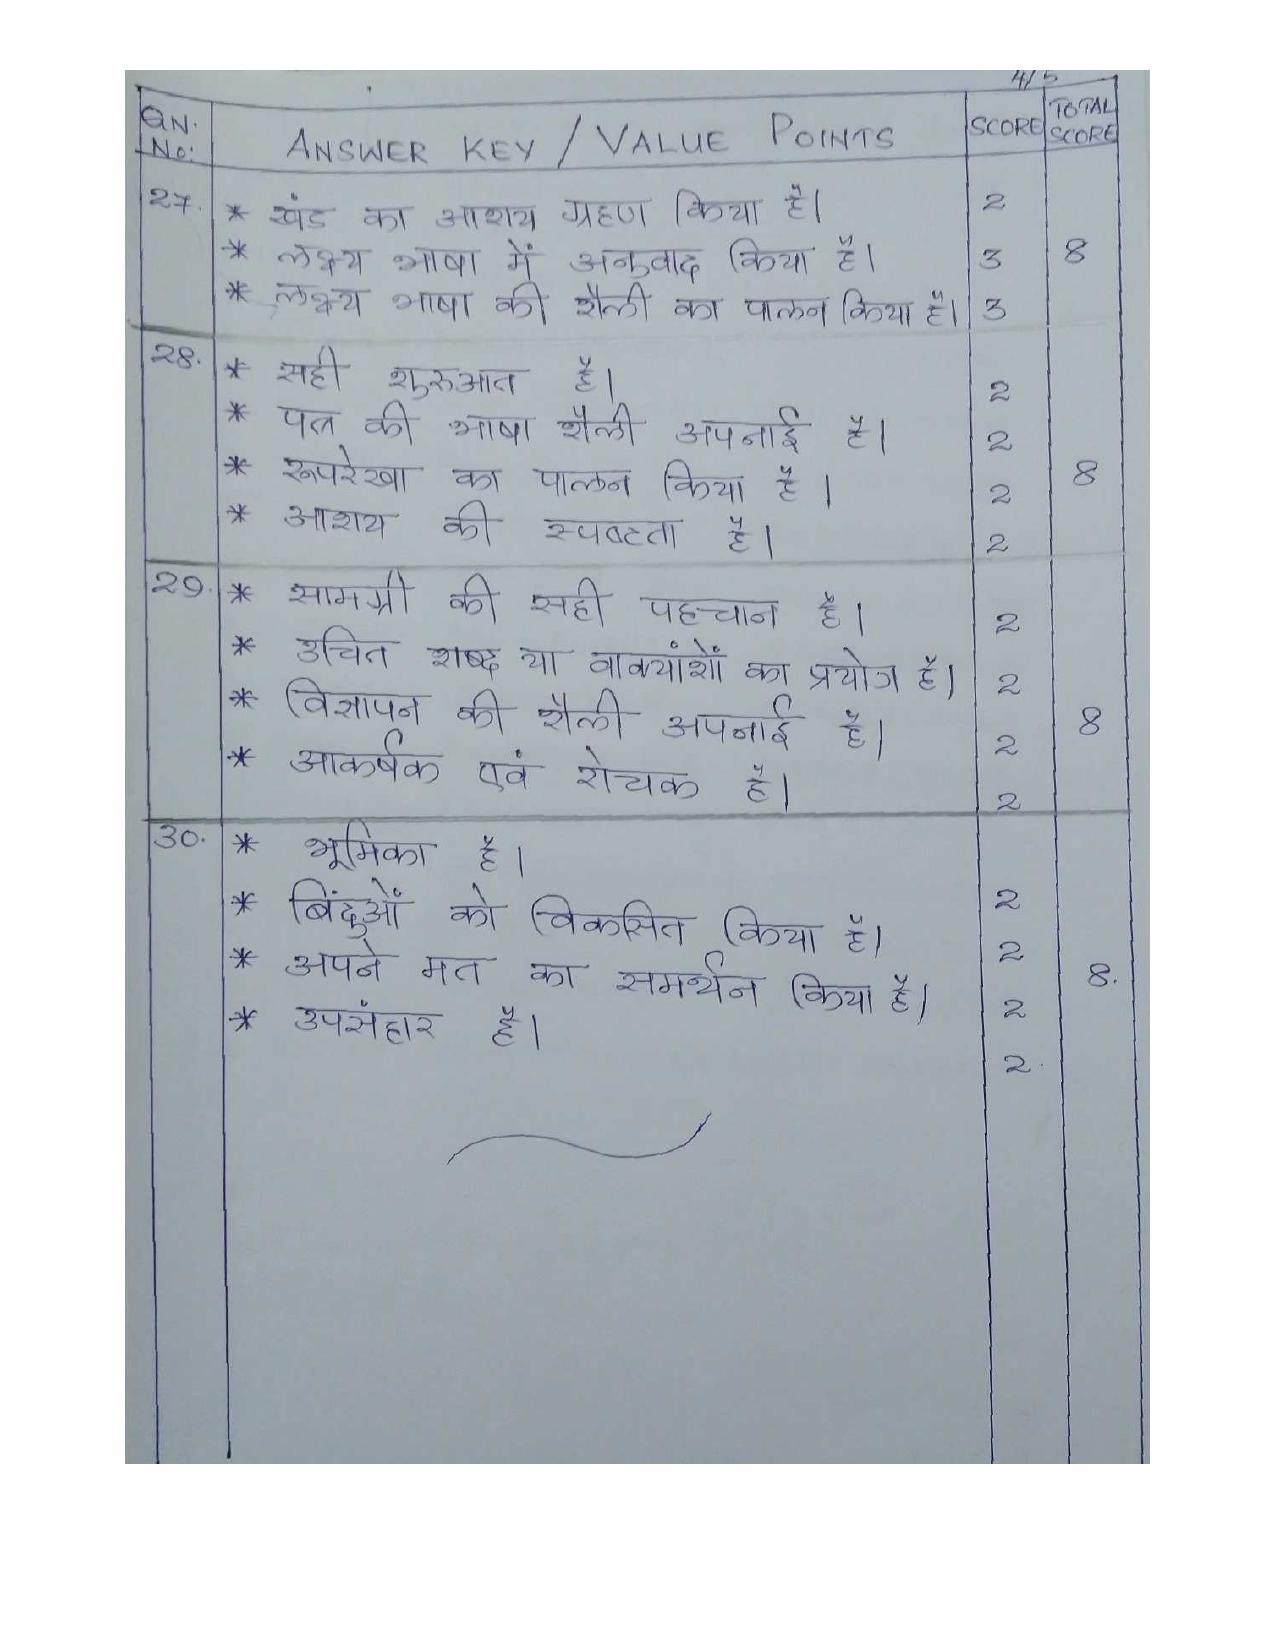 4/5
QN. No: ANSWER KEY / VALUE POINTS SCORE TOTAL SCORE
27. * खंड का आशय ग्रहण किया है। 2
* लक्ष्य भाषा में अनुवाद किया है। 3 8
* लक्ष्य भाषा की शैली का पालन किया है। 3
28. * सही शुरुआत है। 2
* पत्र की भाषा शैली अपनाई है। 2
* रूपरेखा का पालन किया है। 2 8
* आशय की स्पष्टता है। 2
29. * सामग्री की सही पहचान है। 2
* उचित शब्द या वाक्यांशों का प्रयोग है। 2
* विज्ञापन की शैली अपनाई है। 2 8
* आकर्षक एवं रोचक है। 2
30. * भूमिका है। 2
* बिंदुओं को विकसित किया है। 2
* अपने मत का समर्थन किया है। 2 8.
* उपसंहार है। 2.